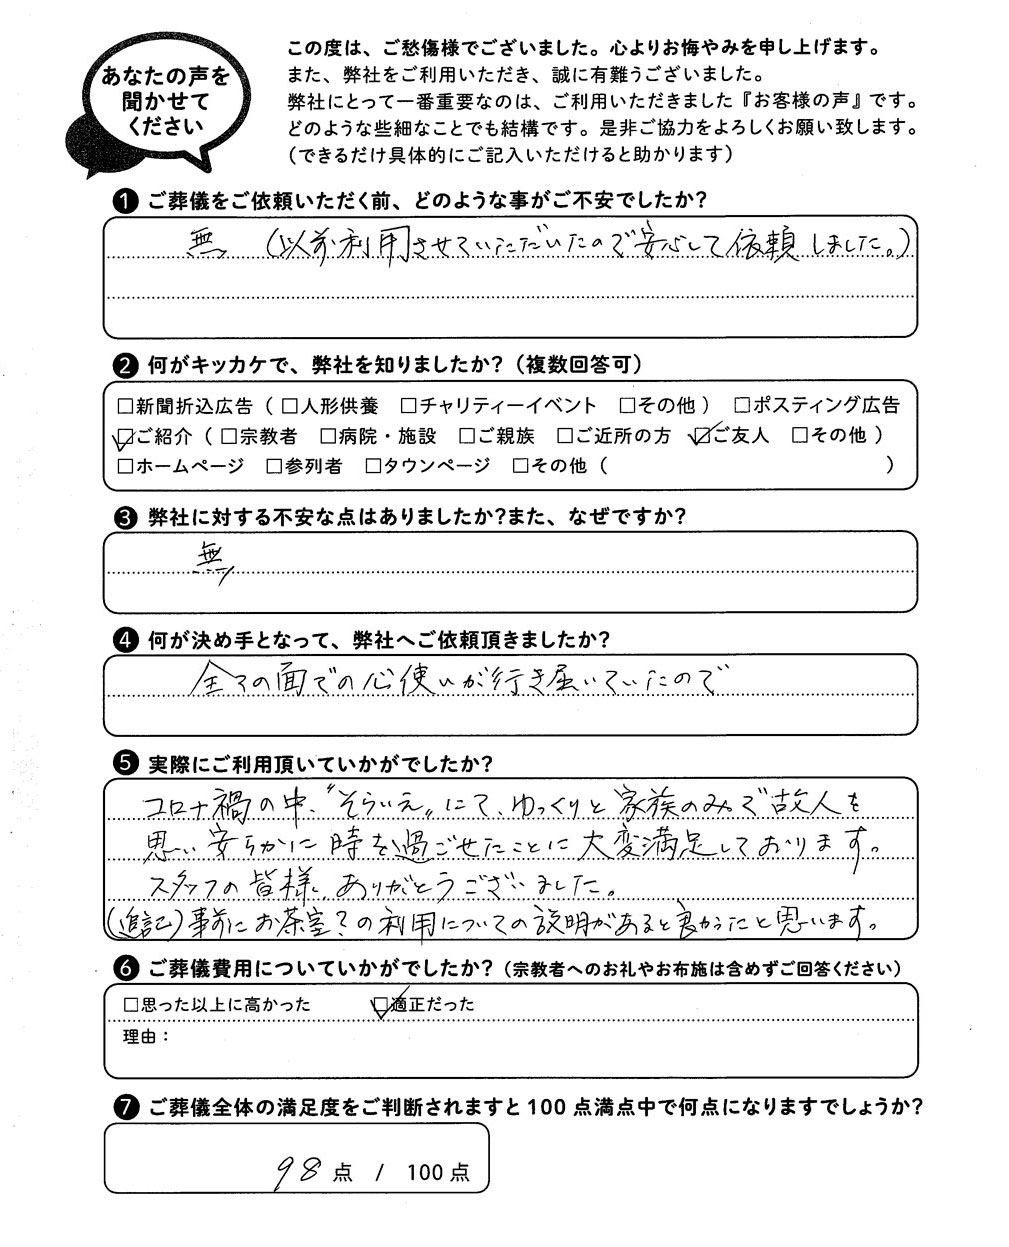 あなたの声を
聞かせて
ください
この度は、ご愁傷様でございました。心よりお悔やみを申し上げます。
また、弊社をご利用いただき、誠に有難うございました。
弊社にとって一番重要なのは、ご利用いただきました『お客様の声』です。
どのような些細なことでも結構です。是非ご協力をよろしくお願い致します。
（できるだけ具体的にご記入いただけると助かります）
❶ ご葬儀をご依頼いただく前、どのような事がご不安でしたか？
無 （以前利用させていただいたので安心して依頼しました。）
❷ 何がキッカケで、弊社を知りましたか？（複数回答可）
□新聞折込広告（ □人形供養 □チャリティーイベント □その他 ） □ポスティング広告
☑ご紹介（ □宗教者 □病院・施設 □ご親族 □ご近所の方 ☑ご友人 □その他 ）
□ホームページ □参列者 □タウンページ □その他（ ）
❸ 弊社に対する不安な点はありましたか？また、なぜですか？
無
❹ 何が決め手となって、弊社へご依頼頂きましたか？
全ての面での心使いが行き届いていたので
❺ 実際にご利用頂いていかがでしたか？
コロナ禍の中、〝そらいえ〟にて、ゆっくりと家族のみで故人を
思い安らかに時を過ごせたことに大変満足しております。
スタッフの皆様、ありがとうございました。
（追記）事前にお茶室？の利用についての説明があると良かったと思います。
❻ ご葬儀費用についていかがでしたか？（宗教者へのお礼やお布施は含めずご回答ください）
□思った以上に高かった ☑適正だった
理由：
❼ ご葬儀全体の満足度をご判断されますと100点満点中で何点になりますでしょうか？
98 点 / 100 点